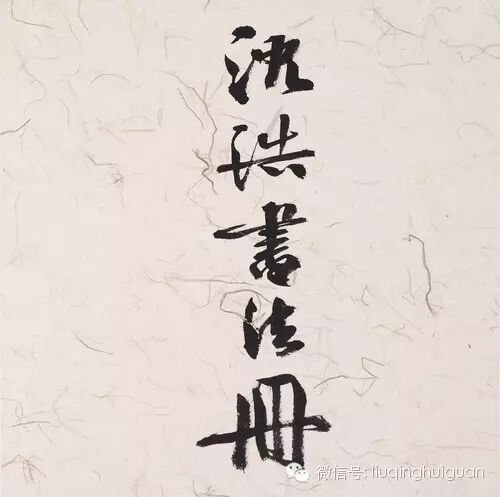 沈浩書法冊
微信号: liuqinghuiguan